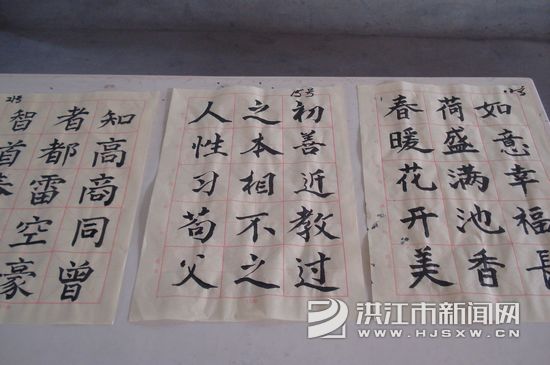 智者知
首都高
雷高
空同
豪曾
15号
人之初
性本善
习相近
苟不教
父之过
春暖花开美
荷盛满池香
如意幸福長
洪江市新闻网
WWW.HJSXW.CN